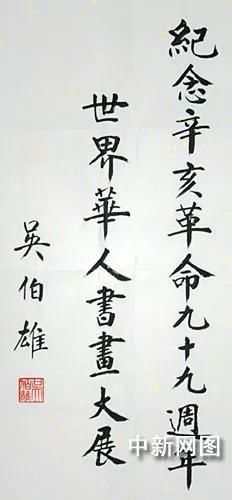 紀念辛亥革命九十九週年
世界華人書畫大展
吳伯雄
中新网图